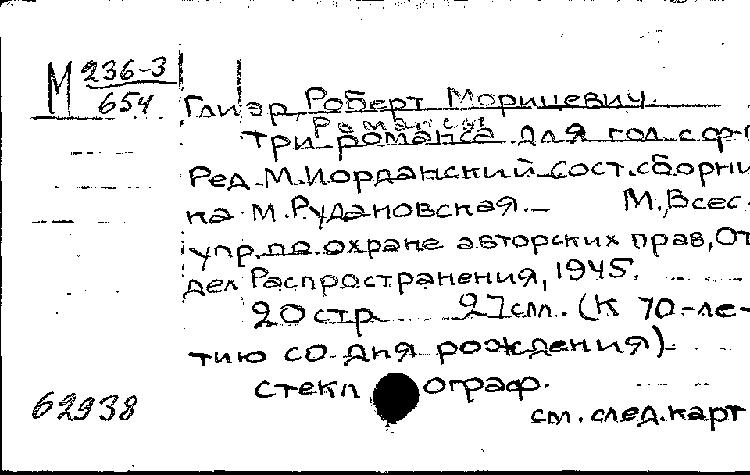 М 236-3
654
Глиэр, Роберт Морицевич.
Романсы
Три романса для гол. с ф-п
Ред. М. Иорданский сост. сборни-
ка М. Рудановская. — М., Всес.
упр. по охране авторских прав, От-
дел Распространения, 1945.
20 стр. 27 см. (К 70-ле-
тию со дня рождения).
стекл ограф.
62938
см. след. карт